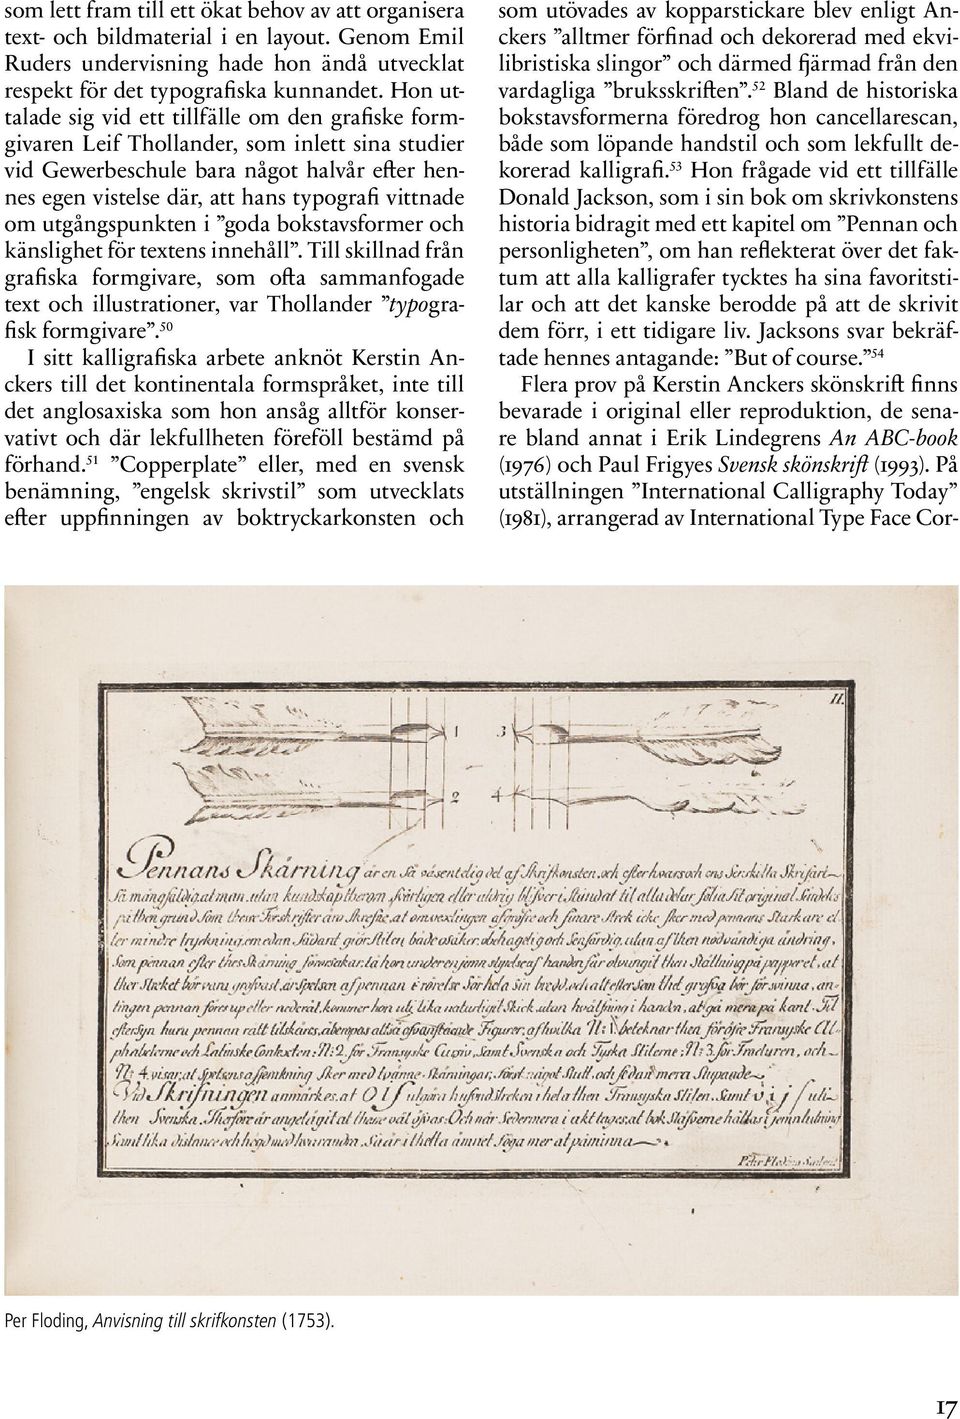 som lett fram till ett ökat behov av att organisera
text- och bildmaterial i en layout. Genom Emil
Ruders undervisning hade hon ändå utvecklat
respekt för det typografiska kunnandet. Hon ut-
talade sig vid ett tillfälle om den grafiske form-
givaren Leif Thollander, som inlett sina studier
vid Gewerbeschule bara något halvår efter hen-
nes egen vistelse där, att hans typografi vittnade
om utgångspunkten i ”goda bokstavsformer och
känslighet för textens innehåll”. Till skillnad från
grafiska formgivare, som ofta sammanfogade
text och illustrationer, var Thollander ”typogra-
fisk formgivare”.50
I sitt kalligrafiska arbete anknöt Kerstin An-
ckers till det kontinentala formspråket, inte till
det anglosaxiska som hon ansåg alltför konser-
vativt och där lekfullheten föreföll bestämd på
förhand.51 ”Copperplate” eller, med en svensk
benämning, ”engelsk skrivstil” som utvecklats
efter uppfinningen av boktryckarkonsten och
som utövades av kopparstickare blev enligt An-
ckers ”alltmer förfinad och dekorerad med ekvi-
libristiska slingor” och därmed fjärmad från den
vardagliga ”bruksskriften”.52 Bland de historiska
bokstavsformerna föredrog hon cancellarescan,
både som löpande handstil och som lekfullt de-
korerad kalligrafi.53 Hon frågade vid ett tillfälle
Donald Jackson, som i sin bok om skrivkonstens
historia bidragit med ett kapitel om ”Pennan och
personligheten”, om han reflekterat över det fak-
tum att alla kalligrafer tycktes ha sina favoritsti-
lar och att det kanske berodde på att de skrivit
dem förr, i ett tidigare liv. Jacksons svar bekräf-
tade hennes antagande: ”But of course.”54
Flera prov på Kerstin Anckers skönskrift finns
bevarade i original eller reproduktion, de sena-
re bland annat i Erik Lindegrens An ABC-book
(1976) och Paul Frigyes Svensk skönskrift (1993). På
utställningen ”International Calligraphy Today”
(1981), arrangerad av International Type Face Cor-
II.
1 3
2 4
Pennans Skärning är en Så väsentelig del af Skrifkonsten, och efter hvars och ens Serskilta Skrifart
Så mångfaldig, at man, utan kundskap therom, svårligen eller aldrig blifver i Stundat til alla delar följa Sit original Såndels
på then grund Som thesse Förskrifter äro Skrefne, at omvexlingen af gröfre och finare Strek icke sker med pennans Starkare el-
ler mindre tryckning, emedan Sådant giör Stilen både osäker, obehagelig och Senfärdig, utan af then nödvändiga ändring,
Som pennan efter thes Skärning förorsakar, tå hon under en jemn styrelse af handen får
Streket bör vara grofvast, är Spetsen af pennan i rörelse
tingen pennan föres up eller neder åt, kommer hon uti lika naturligit Skick, utan hvälfning i handen, at gå mera på kant. Til
eftersyn huru pennan rätt tilskäres, Figurer, af hvilka N: 1. beteknar then för öfre Fransyske Al-
phabeterne och Latinske Contexten; N: 2. för Fransyske Cursiv, Samt Svenska och Tyska Stilerne; N: 3. för Fracturen, och
N: 4. visar, at Spetsens afjemkning Sker med tvänne Skärningar, först något Stutt, och sedan mera Stupande
Vid Skrifningen anmärkes, at O l S utgöra hufvudstreken i hela then Fransyska Stilen, Samt v i j ſ uti
then Svenska. Therföre är angelägit at thesse väl öfvas: Och när Sedermera i akt tages, at bokstäfverne hållas i jemn lutning
Samt lika distance och högd med hvarandra, Så är i thetta ämnet föga mer at påminna
Pehr Floding
Per Floding, Anvisning till skrifkonsten (1753).
17